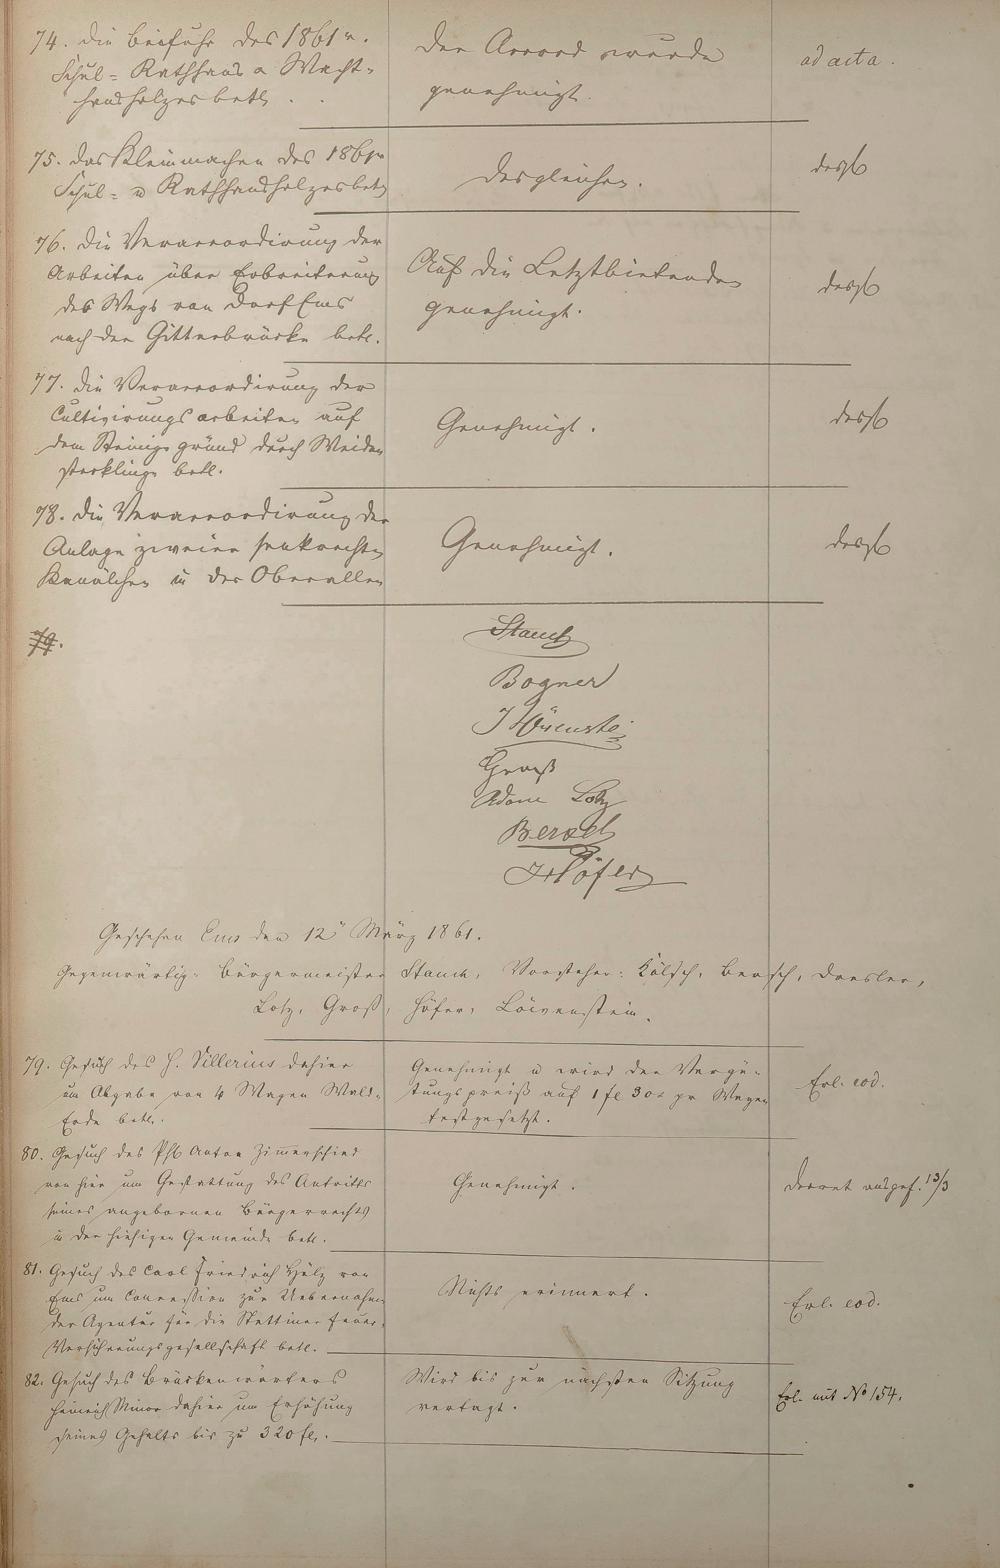 74. Die Beifuhr des 1861r.
Schul- Rathhaus u Wacht-
haus holzes betr.
Der Accord wurde
genehmigt.
ad acta.
75. Das Kleinmachen des 1861r
Schul- u Rathhausholzes betr
Desgleichen.
desgl
76. Die Veraccordirung der
Arbeiten über Erbreiterung
des Wegs von Dorf Ems
nach der Gitterbrücke betr.
Auf die Letztbietenden
genehmigt.
desgl
77. Die Veraccordirung der
Cultivirungsarbeiten auf
dem gründ durch Weiden
stecklinge betr.
Genehmigt.
desgl
78. Die Veraccordirung der
Anlage zweier senkrechten
Kanälchen in der Oberallee
Genehmigt.
desgl
79.
Stauch
Bogner
J Löwenstein
Gross
Adam Lotz
Bersch
Höfer
Geschehen Ems den 12n März 1861.
Gegenwärtig: Bürgermeister Stauch, Vorsteher: Kölsch, Bersch, Dresler,
Lotz, Groß, Höfer, Löwenstein.
79. Gesuch des H. Villerius dahier
um Abgabe von 4 Wagen Wald-
Erde betr.
Genehmigt u wird der Vergü-
tungspreiß auf 1 fl 30x pr Wagen
festgesetzt.
Erl. eod.
80. Gesuch des Phl Anton Zimmerschied
von hier um Gestattung des Antritts
seines angebornen Bürgerrechts
in der hiesigen Gemeinde betr.
Genehmigt.
Decret ausgef. 13/3
81. Gesuch des Carl Friedrich Hölz von
Ems um Concession zur Uebernahme
der Agentur für die Stettiner Feuer-
Versicherungsgesellschaft betr.
Nichts erinnert.
Erl. eod.
82. Gesuch des Brückenwärters
Heinrich Minor dahier um Erhöhung
seines Gehalts bis zu 320 fl.
Wird bis zur nächsten Sitzung
vertagt.
Erl. mit No 154.